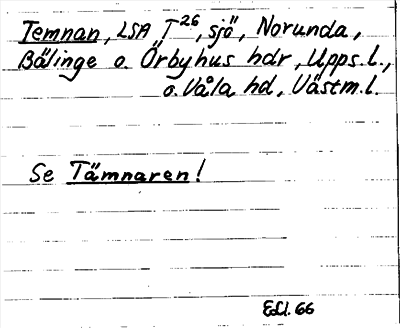 Temnan, LSA T26, sjö, Norunda,
Bälinge o. Örbyhus hdr, Upps.l.,
o. Våla hd, Västm.l.
Se Tämnaren!
E.Ll. 66